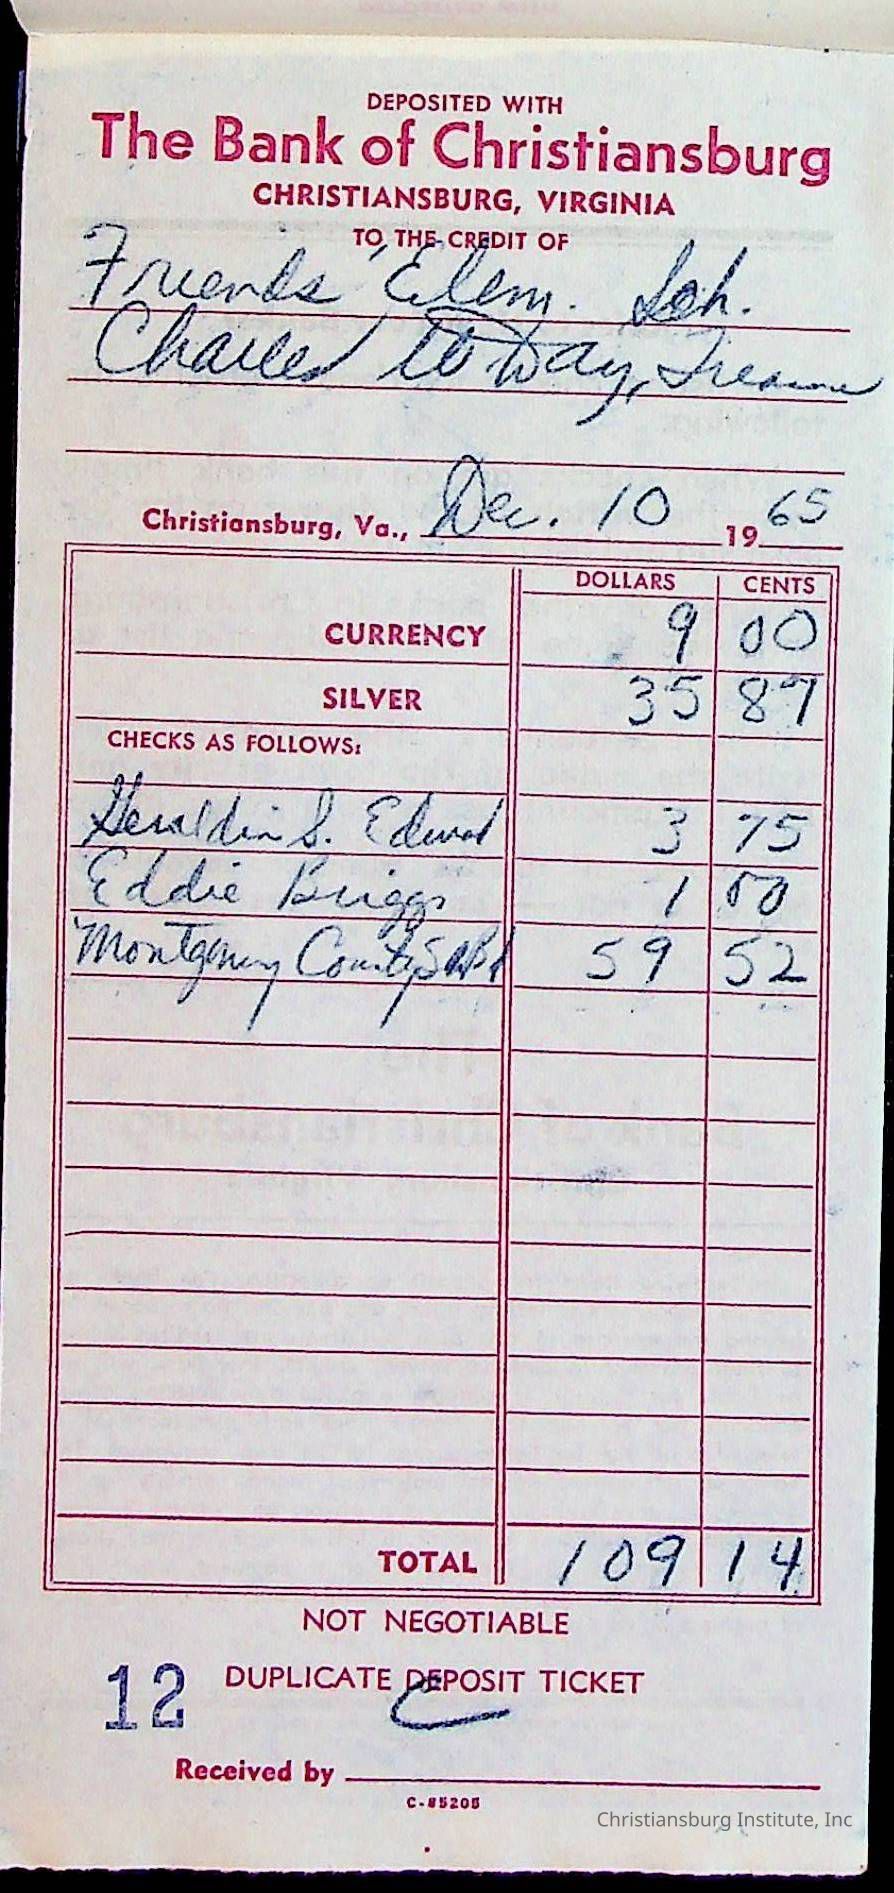 DEPOSITED WITH
The Bank of Christiansburg
CHRISTIANSBURG, VIRGINIA
TO THE CREDIT OF
Friends Elem. Sch.
Charles Day,
Christiansburg, Va., Dec. 10 1965
DOLLARS CENTS
CURRENCY 9 00
SILVER 35 87
CHECKS AS FOLLOWS:
S. 3 75
Eddie Briggs 1 00
Montgomery County 59 52
TOTAL 109 14
NOT NEGOTIABLE
12 DUPLICATE DEPOSIT TICKET
Received by
C-85205
Christiansburg Institute, Inc